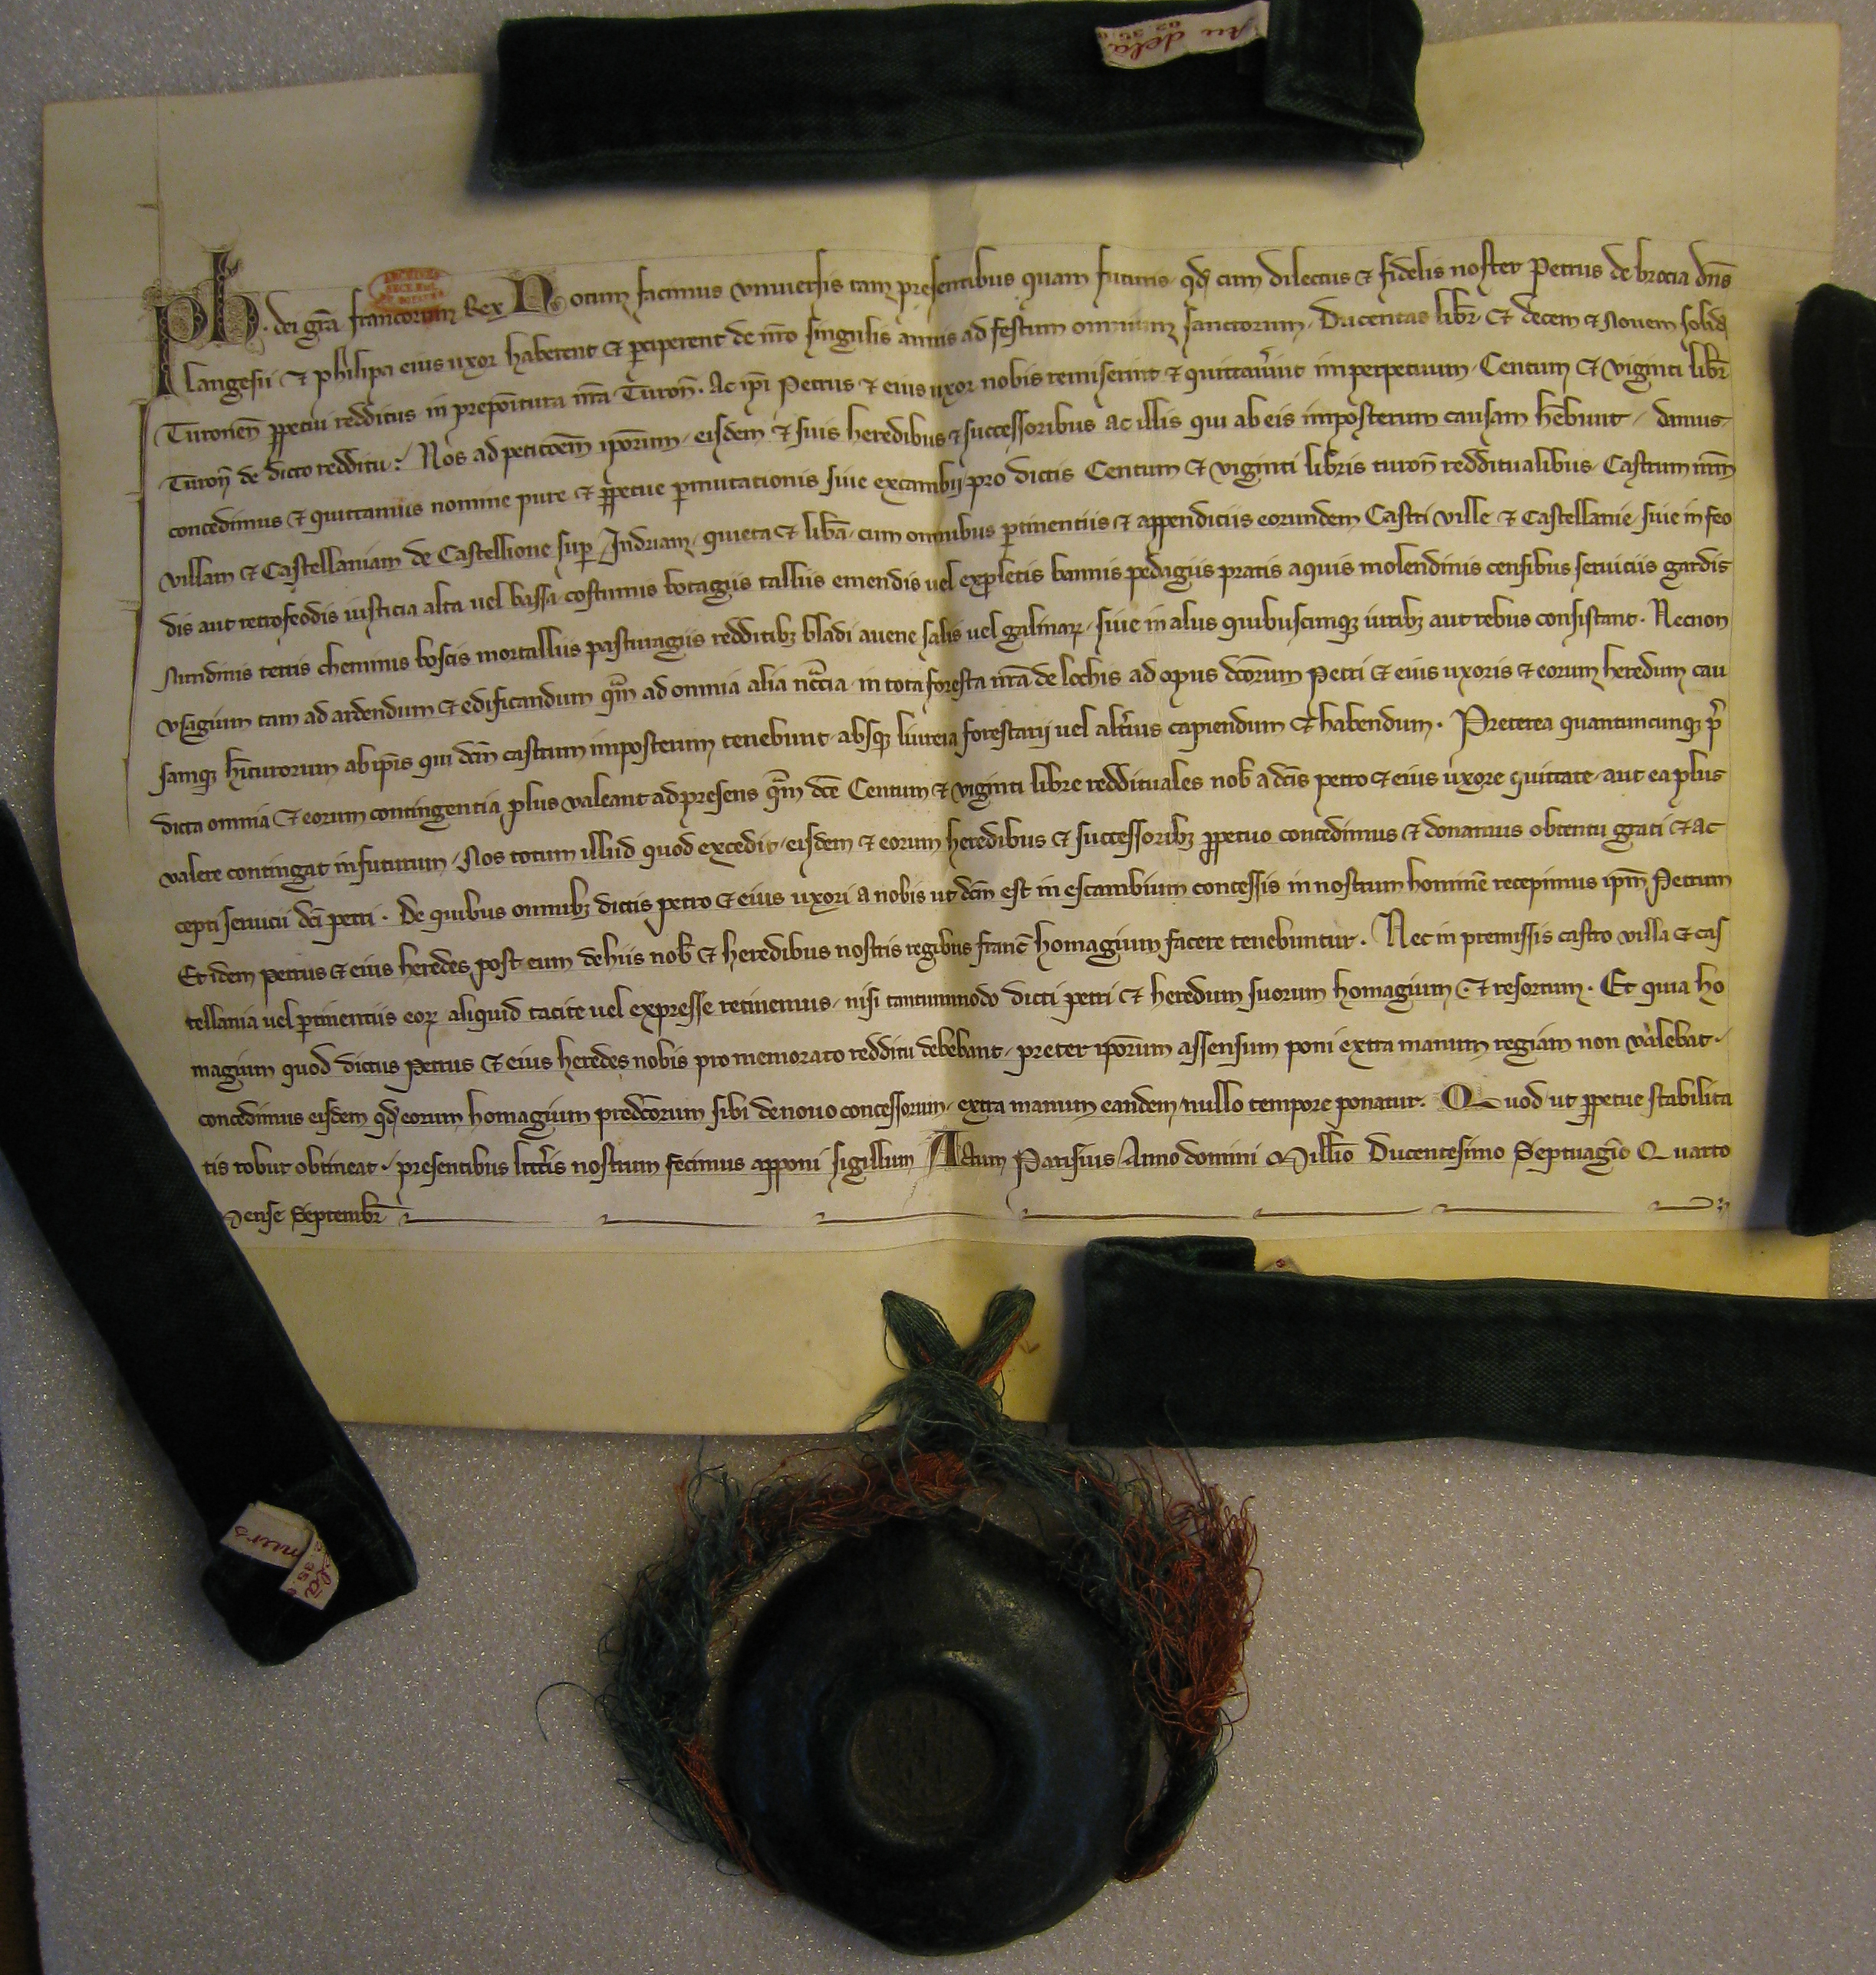 Ph. dei gr̃a francorum Rex Notum facimus vniuersis tam presentibus quam futuris qd̃ cum dilectus ⁊ fidelis noster Petrus de brocia dñs
langesii ⁊ philipa eius uxor haberent ⁊ ꝑciperent de nr̃o singulis annis ad festum omnium sanctorum. Ducentas libr̃. ⁊ decem ⁊ Nouem solid̃
Turonen̄ ꝑpetui redditus in prepõitura nr̃a Turon̄. Ac ip̃i Petrus ⁊ eius uxor nobis remiserint ⁊ quittau̾int imperpetuum. Centum ⁊ viginti libr̃
Turon̄ de dicto redditu: Nos ad petic̃oem ip̃orum. eisdem ⁊ suis heredibus ⁊ successoribus ac illis qui ab eis imposterum causam hẽbunt. damus
concedimus ⁊ quittamus nomine pure ⁊ ꝑpetue ꝑmutationis siue excambij pro dictis Centum ⁊ viginti libris turon̄ redditualibus. Castrum nr̃m
villam ⁊ Castellaniam de Castellione suꝑ Indriam. quieta ⁊ lib̃a. cum omnibus ꝑtinentiis ⁊ appendiciis eorundem Castri ville ⁊ Castellanie. siue in feo
dis aut retrofeodis iusticia alta uel bassa costumis botagiis talliis emendis uel expletis bannis pedagiis pratis aquis molendinis censibus seruiciis gardis
Nundinis terris cheminis boscis mortalliis pasturagiis redditibꝫ bladi auene salis uel galinaꝝ. siue in aliis quibuscunqꝫ iuribꝫ aut rebus consistant. Necnon
vsagium tam ad ardendum ⁊ edificandum qᷓm ad omnia alia nc̃cia. in tota foresta nr̃a de lochis ad opus dc̃orum Petri ⁊ eius uxoris ⁊ eorum heredum cau
samqꝫ hĩturorum ab ip̃is qui dc̃m castrum imposterum tenebunt. absqꝫ liureia forestarij uel alt̾ius capiendum ⁊ habendum. Preterea quantuncunqꝫ p̾
dicta omnia ⁊ eorum contingentia plus valeant ad presens qᷓm dc̃e Centum ⁊ viginti libre reddituales nob̃ a dc̃is petro ⁊ eius uxore quittate. aut ea plus
valere contingat in futurum. Nos totum illud quod excedit. eisdem ⁊ eorum heredibus ⁊ successoribꝫ ꝑpetuo concedimus ⁊ donamus obtentu grati ⁊ ac
cepti seruicii dc̃i petri. De quibus omnibꝫ dictis petro ⁊ eius uxori a nobis ut dc̃m est in escambium concessis in nostrum hominẽ recepimus ip̃m Petrum
Et idem petrus ⁊ eius heredes post eum de hiis nob̃ ⁊ heredibus nostris regibus franc̃ homagium facere tenebuntur. Nec in premissis castro villa ⁊ cas
tellania uel ꝑtinentiis eoꝝ aliquid tacite uel expresse retinemus. nisi tantummodo dicti petri ⁊ heredum suorum homagium ⁊ resortum. Et quia ho
magium quod dictus Petrus ⁊ eius heredes nobis pro memorato redditu debebant. preter ip̃orum assensum poni extra manum regiam non valebat.
concedimus eisdem qd̃ eorum homagium predc̃orum sibi denouo concessorum. extra manum eandem nullo tempore ponatur. Quod ut ꝑpetue stabilita
tis robur obtineat. presentibus litt̾is nostrum fecimus apponi sigillum Actum Parisius Anno domini Mill̃io Ducentesimo Septuagĩo Quarto
Mense Septembr̃